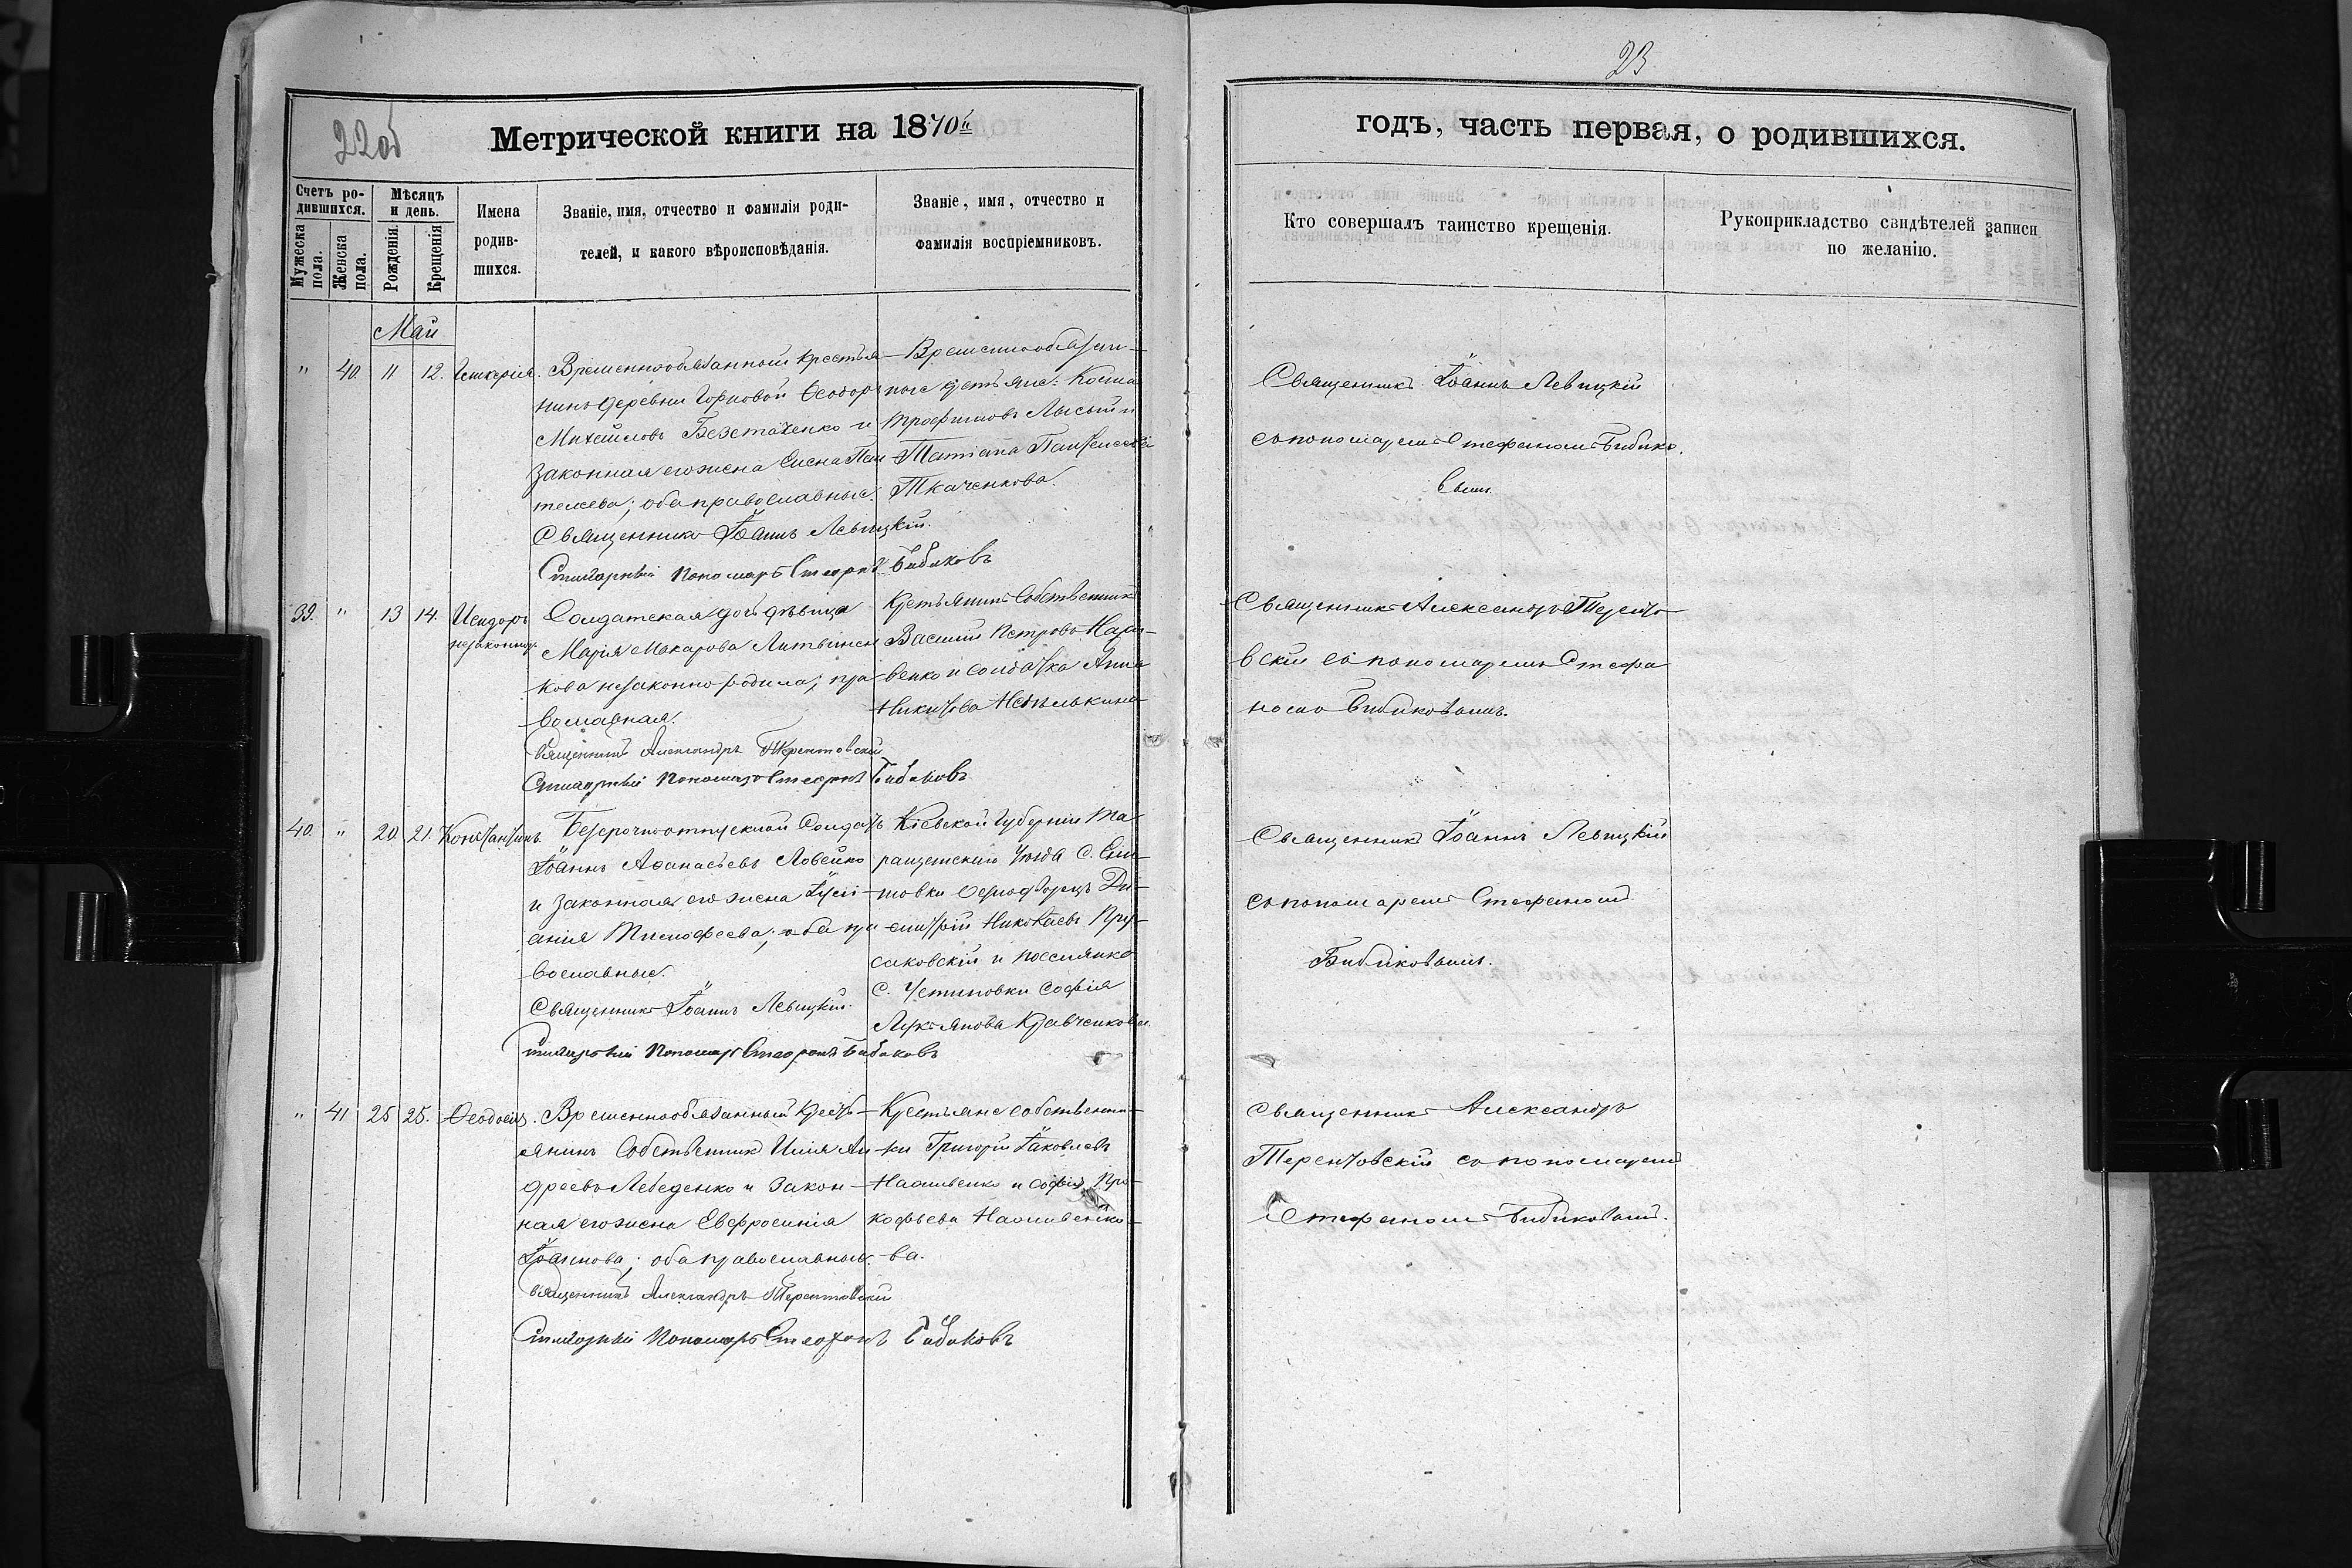 22об
23
Метрической книги на 1870й
годъ, часть первая, о родившихся.
Счетъ родившихся.
Мужеска пола.
Женска пола.
Мѣсяцъ и день.
Рожденія.
Крещенія.
Имена родившихся.
Званіе, имя, отчество и фамилія роди-
телей, и какого вѣроисповѣданія.
Званіе, имя, отчество и
фамилія воспріемниковъ.
Кто совершалъ таинство крещенія.
Рукоприкладство свидѣтелей записи
по желанію.
Май
" 40. 11 12. Гликерія.
Временнообязанный крестья-
нинъ деревни Горповой Ѳеодоръ
Михайловъ Безстаченко и
законная его жена Елена Пан-
телеева; оба православные.
Священникъ Іоаннъ Левицкій.
Стихарный Пономарь Стефанъ Бибиковъ
Временнообязан-
ные крестьяне: Косма
Трофимовъ Лысый и
Татіана Пантелеева
Ткаченкова.
Священникъ Іоаннъ Левицкій
съ пономаремъ Стефаномъ Бибико-
вымъ.
39. " 13 14. Исидоръ
незаконнор.
Солдатская дочь дѣвица
Марія Макарова Литвинен-
кова незаконно родила; пра-
вославная.
Священникъ Александръ Терентовскій
Стихарный Пономарь Стефанъ Бибиковъ
Крестьянинъ Собственникъ
Василій Петровъ
венко и солдатка Анна
Никитова
Священникъ Александръ Теренто-
вскій съ пономаремъ Стефа-
номъ Бибиковымъ.
40. " 20 21. Константинъ.
Безсрочноотпускной Солдатъ
Іоаннъ Аѳанасьевъ Ловейко
и законная его жена Іулі-
анія Тимофеева; оба пра-
вославные.
Священникъ Іоаннъ Левицкій.
Стихарный Пономарь Стефанъ Бибиковъ
Кіевской Губерніи Та-
ращанскаго Уѣзда С.
товки Однодворецъ Ди-
митрій Николаевъ Пру-
саковскій и поселянка
С. Устиновки Софія
Лукьянова Кравченкова.
Священникъ Іоаннъ Левицкій
съ пономаремъ Стефаномъ
Бибиковымъ.
" 41 25 25. Ѳеодосія.
Временнообязанный крестья-
янинъ Собственникъ Илія Ан-
дреевъ Лебеденко и закон-
ная его жена Евфросинія
Іоаннова; оба православные.
Священникъ Александръ Терентовскій
Стихарный Пономарь Стефанъ Бибиковъ
Крестьяне собственни-
ки Григорій Іаковлевъ
Наоливенко и Софія Про-
кофьева Наоливенко-
ва.
Священникъ Александръ
Терентовскій съ пономаремъ
Стефаномъ Бибиковымъ.